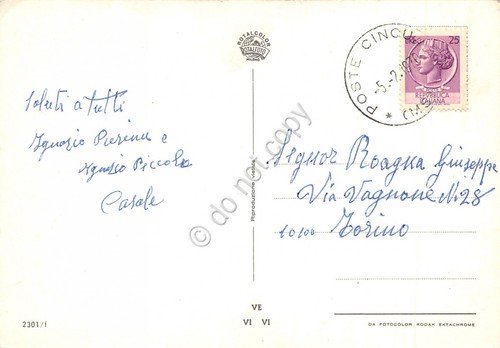 ROTALCOLOR
ROTALFOTO
MILANO
POSTE CINQU
-5.2.1970
25
REPUBBLICA
ITALIANA
Saluti a tutti
Ignazio Pierina e
Ignazio Piccolo
Casale
Signor Roagna Giuseppe
Via Vagnone N. 28
10100 Torino
Riproduzione vietata
do not copy
VE
VI VI
2301/f
DA FOTOCOLOR KODAK EKTACHROME